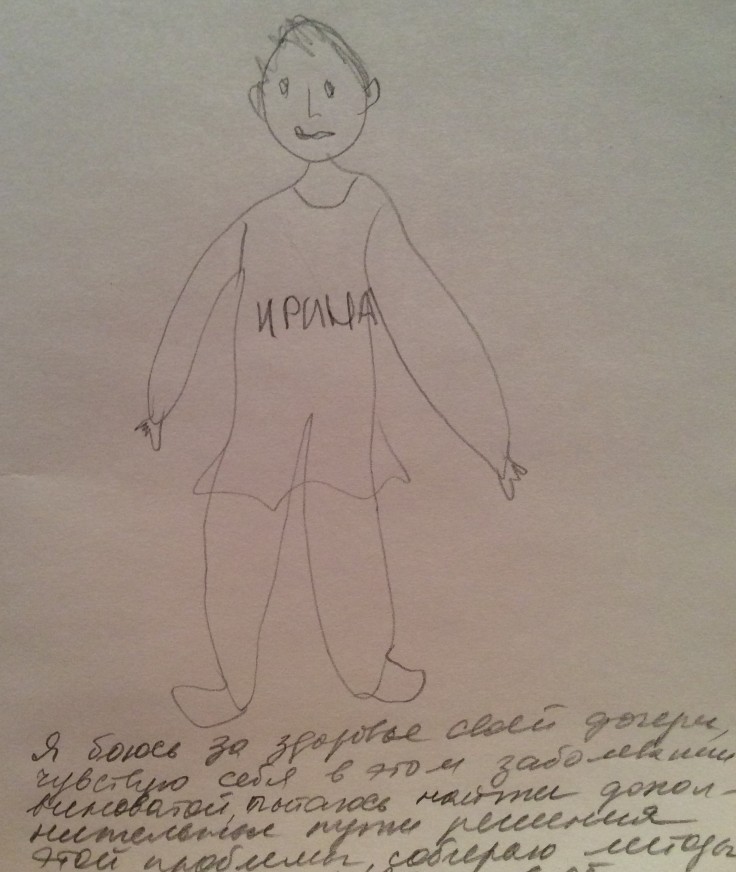 ИРИНА
Я боюсь за здоровье своей дочери,
чувствую себя в этом заболевании
виноватой, пытаюсь найти допол-
нительные пути решения
этой проблемы, собираю методы